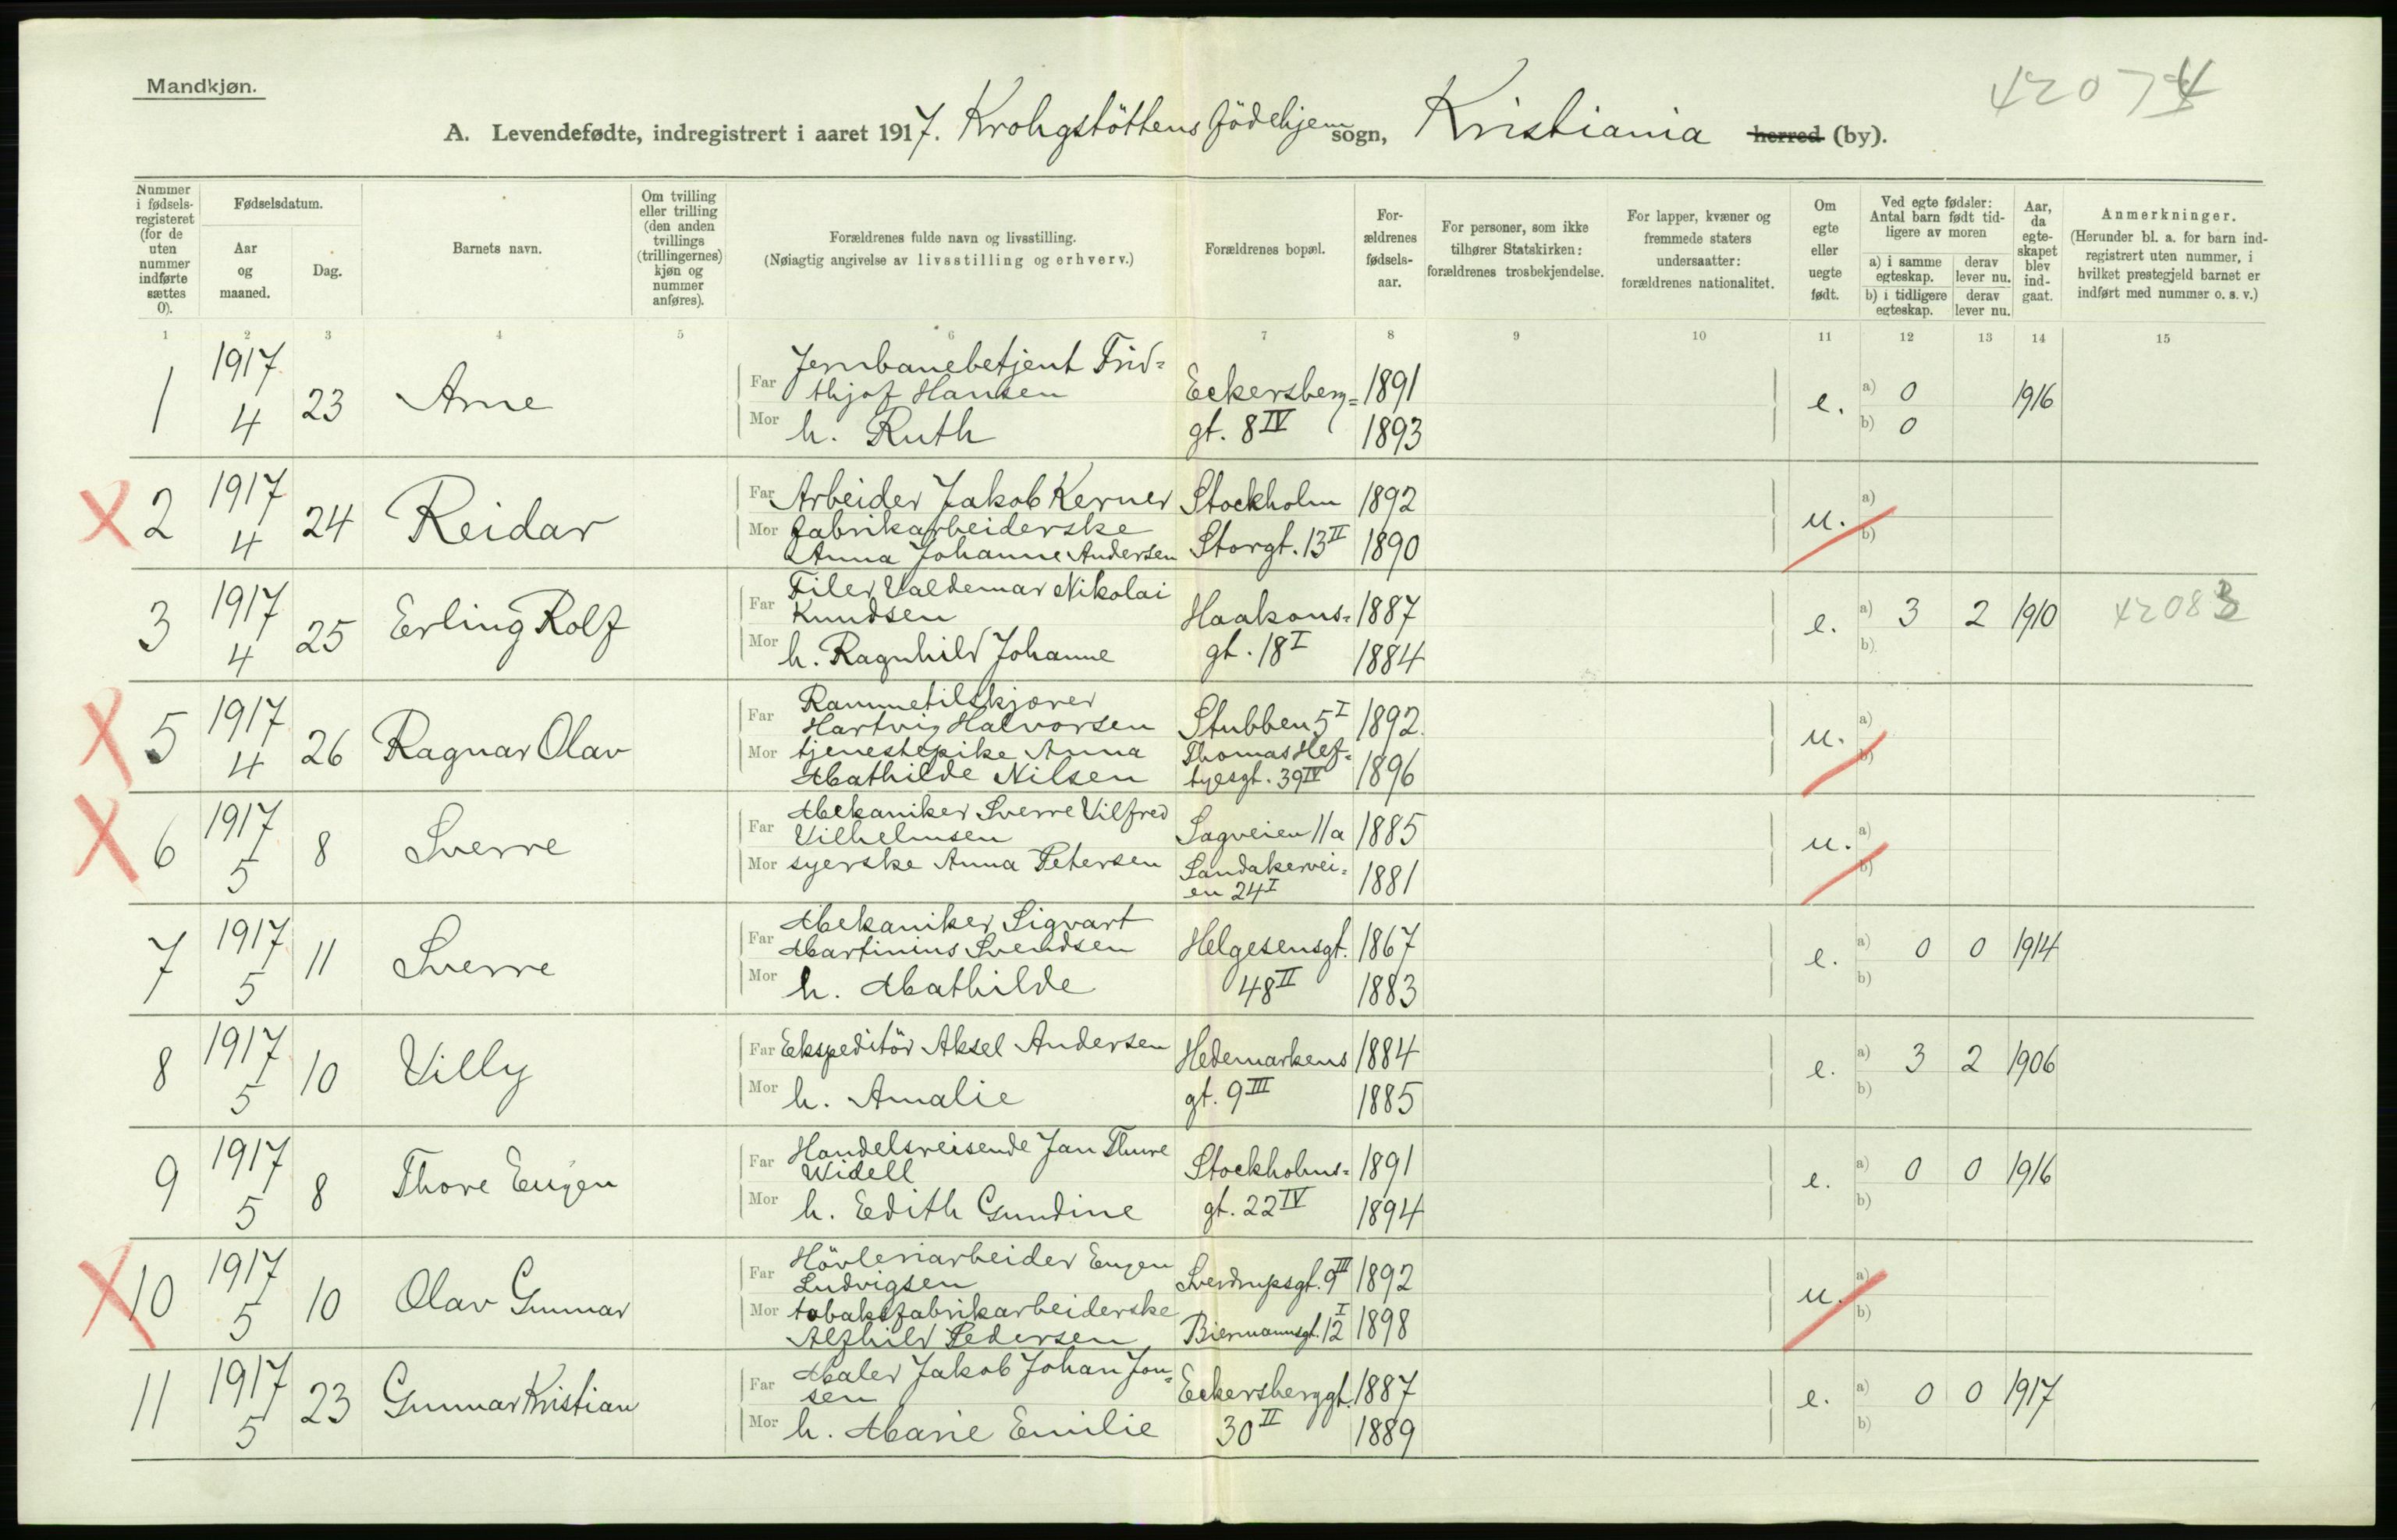 Mandkjøn.
42074
A. Levendefødte, indregistrert i aaret 1917. Krohgstöttens födehjem sogn, Kristiania herred (by).
Nummer i fødselsregisteret (for de uten nummer indførte sættes 0).
Fødselsdatum.
Aar og maaned.
Dag.
Barnets navn.
Om tvilling eller trilling (den anden tvillings (trillingernes) kjøn og nummer anføres).
Forældrenes fulde navn og livsstilling.
(Nøiagtig angivelse av livsstilling og erhverv.)
Forældrenes bopæl.
Forældrenes fødselsaar.
For personer, som ikke tilhører Statskirken: forældrenes trosbekjendelse.
For lapper, kvæner og fremmede staters undersaatter: forældrenes nationalitet.
Om egte eller uegte født.
Ved egte fødsler: Antal barn født tidligere av moren
a) i samme egteskap. derav lever nu.
b) i tidligere egteskap. derav lever nu.
Aar, da egteskapet blev indgaat.
Anmerkninger.
(Herunder bl. a. for barn indregistrert uten nummer, i hvilket prestegjeld barnet er indført med nummer o. s. v.)
1 2 3 4 5 6 7 8 9 10 11 12 13 14 15
1 1917 4 23 Arne
Far Jernbanebetjent Fridthjof Hansen
Mor h. Ruth
Eckersberggt. 8 IV
1891
1893
e. a) 0 b) 0 1916
X 2 1917 4 24 Reidar
Far Arbeider Jakob Kerner Stockholm 1892
Mor fabrikarbeiderske
Anna Johanne Andersen Storgt. 13 II 1890
u. a) b)
3 1917 4 25 Erling Rolf
Far Filer Valdemar Nikolai
Knudsen Haakons= 1887
Mor h. Ragnhild Johanne gt. 18 I 1884
e. a) 3 2 1910 b)
42083
X 5 1917 4 26 Ragnar Olav
Far Rammetilskjærer
Hartvig Halvorsen Stubben 5 I 1892.
Mor tjenestepike Anna Thomas Hef=
Mathilde Nilsen tyesgt. 39 IV 1896
u. a) b)
X 6 1917 5 8 Sverre
Far Mekaniker Sverre Vilfred
Vilhelmsen Sagveien 11a 1885
Mor syerske Anna Petersen Sandakervei=
en 24 I 1881
u. a) b)
7 1917 5 11 Sverre
Far Mekaniker Sigvart
Martinius Svendsen Helgesensgt. 1867
Mor h. Mathilde 48 II 1883
e. a) 0 0 1914 b)
8 1917 5 10 Villy
Far Ekspeditör Aksel Andersen Hedemarkens 1884
Mor h. Amalie gt. 9 III 1885
e. a) 3 2 1906 b)
9 1917 5 8 Thore Eugen
Far Handelsreisende Jan Thure
Widell Stockholms= 1891
Mor h. Edith Gundine gt. 22 IV 1894
e. a) 0 0 1916 b)
X 10 1917 5 10 Olav Gunnar
Far Hövleriarbeider Eugen
Ludvigsen Sverdrupsgt. 9 III 1892
Mor tobaksfabrikarbeiderske
Alfhild Pedersen Biermannsgt. 12 I 1898
u. a) b)
11 1917 5 23 Gunnar Kristian
Far Maler Jakob Johan Jon=
sen Eckersberggt. 1887
Mor h. Marie Emilie 30 II 1889
e. a) 0 0 1917 b)